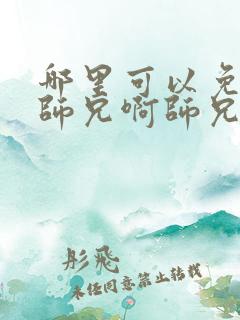 哪里可以免
師兄啊師兄
彤飛
未经同意禁止转载